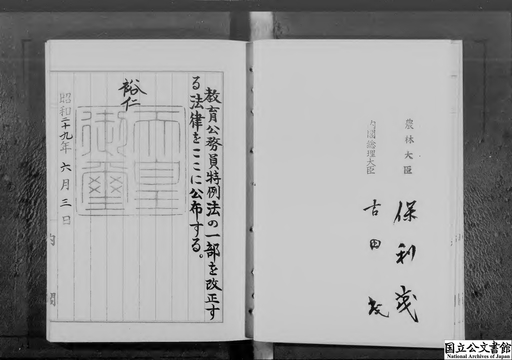 農林大臣
保利茂
内閣総理大臣
吉田茂
教育公務員特例法の一部を改正す
る法律をここに公布する。
裕仁
天皇
御璽
昭和二十九年六月三日
内閣
国立公文書館
National Archives of Japan